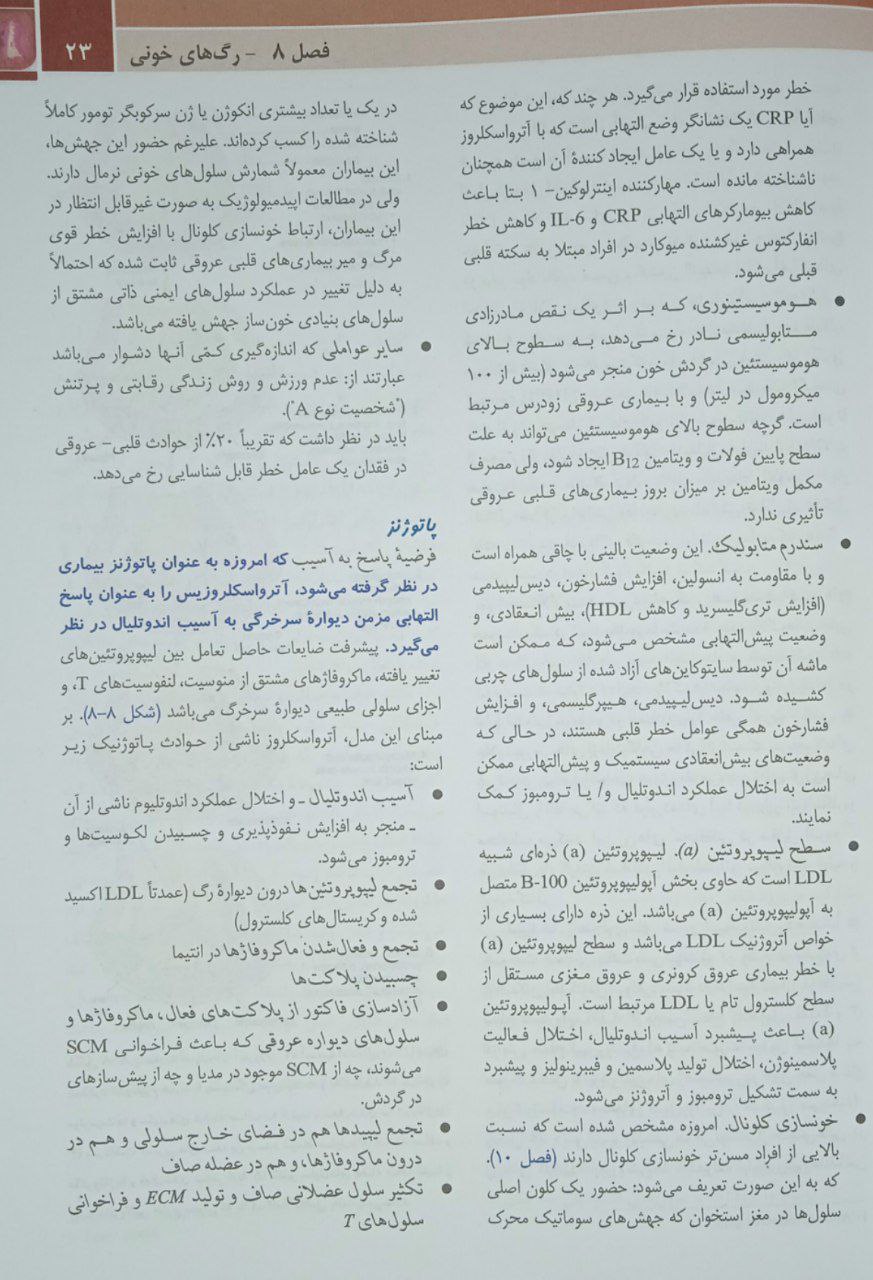 فصل ۸ - رگ‌های خونی ۲۳
خطر مورد استفاده قرار می‌گیرد. هر چند که، این موضوع که
آیا CRP یک نشانگر وضع التهابی است که با آترواسکلروز
همراهی دارد و یا یک عامل ایجاد کنندهٔ آن است همچنان
ناشناخته مانده است. مهارکننده اینترلوکین- ۱ بتا باعث
کاهش بیومارکرهای التهابی CRP و IL-6 و کاهش خطر
انفارکتوس غیرکشنده میوکارد در افراد مبتلا به سکته قلبی
قبلی می‌شود.
● هوموسیستینوری، که بر اثر یک نقص مادرزادی
متابولیسمی نادر رخ می‌دهد، به سطوح بالای
هوموسیستئین در گردش خون منجر می‌شود (بیش از ۱۰۰
میکرومول در لیتر) و با بیماری عروقی زودرس مرتبط
است. گرچه سطوح بالای هوموسیستئین می‌تواند به علت
سطح پایین فولات و ویتامین B12 ایجاد شود، ولی مصرف
مکمل ویتامین بر میزان بروز بیماری‌های قلبی عروقی
تأثیری ندارد.
● سندرم متابولیک. این وضعیت بالینی با چاقی همراه است
و با مقاومت به انسولین، افزایش فشارخون، دیس‌لیپیدمی
(افزایش تری‌گلیسرید و کاهش HDL)، بیش انعقادی، و
وضعیت پیش‌التهابی مشخص می‌شود، که ممکن است
ماشه آن توسط سایتوکاین‌های آزاد شده از سلول‌های چربی
کشیده شود. دیس‌لیپیدمی، هیپرگلیسمی، و افزایش
فشارخون همگی عوامل خطر قلبی هستند، در حالی که
وضعیت‌های بیش‌انعقادی سیستمیک و پیش‌التهابی ممکن
است به اختلال عملکرد اندوتلیال و/ یا ترومبوز کمک
نمایند.
● سطح لیپوپروتئین (a). لیپوپروتئین (a) ذره‌ای شبیه
LDL است که حاوی بخش آپولیپوپروتئین B-100 متصل
به آپولیپوپروتئین (a) می‌باشد. این ذره دارای بسیاری از
خواص آتروژنیک LDL می‌باشد و سطح لیپوپروتئین (a)
با خطر بیماری عروق کرونری و عروق مغزی مستقل از
سطح کلسترول تام یا LDL مرتبط است. آپولیپوپروتئین
(a) باعث پیشبرد آسیب اندوتلیال، اختلال فعالیت
پلاسمینوژن، اختلال تولید پلاسمین و فیبرینولیز و پیشبرد
به سمت تشکیل ترومبوز و آتروژنز می‌شود.
● خونسازی کلونال. امروزه مشخص شده است که نسبت
بالایی از افراد مسن‌تر خونسازی کلونال دارند (فصل ۱۰).
که به این صورت تعریف می‌شود: حضور یک کلون اصلی
سلول‌ها در مغز استخوان که جهش‌های سوماتیک محرک
در یک یا تعداد بیشتری انکوژن یا ژن سرکوبگر تومور کاملاً
شناخته شده را کسب کرده‌اند. علیرغم حضور این جهش‌ها،
این بیماران معمولاً شمارش سلول‌های خونی نرمال دارند.
ولی در مطالعات اپیدمیولوژیک به صورت غیرقابل انتظار در
این بیماران، ارتباط خونسازی کلونال با افزایش خطر قوی
مرگ و میر بیماری‌های قلبی عروقی ثابت شده که احتمالاً
به دلیل تغییر در عملکرد سلول‌های ایمنی ذاتی مشتق از
سلول‌های بنیادی خون‌ساز جهش یافته می‌باشد.
● سایر عواملی که اندازه‌گیری کمّی آنها دشوار می‌باشد
عبارتند از: عدم ورزش و روش زندگی رقابتی و پرتنش
("شخصیت نوع A").
باید در نظر داشت که تقریباً ۲۰٪ از حوادث قلبی- عروقی
در فقدان یک عامل خطر قابل شناسایی رخ می‌دهد.
پاتوژنز
فرضیهٔ پاسخ به آسیب که امروزه به عنوان پاتوژنز بیماری
در نظر گرفته می‌شود، آترواسکلروزیس را به عنوان پاسخ
التهابی مزمن دیوارهٔ سرخرگی به آسیب اندوتلیال در نظر
می‌گیرد. پیشرفت ضایعات حاصل تعامل بین لیپوپروتئین‌های
تغییر یافته، ماکروفاژهای مشتق از منوسیت، لنفوسیت‌های T، و
اجزای سلولی طبیعی دیوارهٔ سرخرگ می‌باشد (شکل ۸-۸). بر
مبنای این مدل، آترواسکلروز ناشی از حوادث پاتوژنیک زیر
است:
● آسیب اندوتلیال ـ و اختلال عملکرد اندوتلیوم ناشی از آن
ـ منجر به افزایش نفوذپذیری و چسبیدن لکوسیت‌ها و
ترومبوز می‌شود.
● تجمع لیپوپروتئین‌ها درون دیوارهٔ رگ (عمدتاً LDL اکسید
شده و کریستال‌های کلسترول)
● تجمع و فعال‌شدن ماکروفاژها در انتیما
● چسبیدن پلاکت‌ها
● آزادسازی فاکتور از پلاکت‌های فعال، ماکروفاژها و
سلول‌های دیواره عروقی که باعث فراخوانی SCM
می‌شوند، چه از SCM موجود در مدیا و چه از پیش‌سازهای
در گردش.
● تجمع لیپیدها هم در فضای خارج سلولی و هم در
درون ماکروفاژها، و هم در عضله صاف
● تکثیر سلول عضلانی صاف و تولید ECM و فراخوانی
سلول‌های T